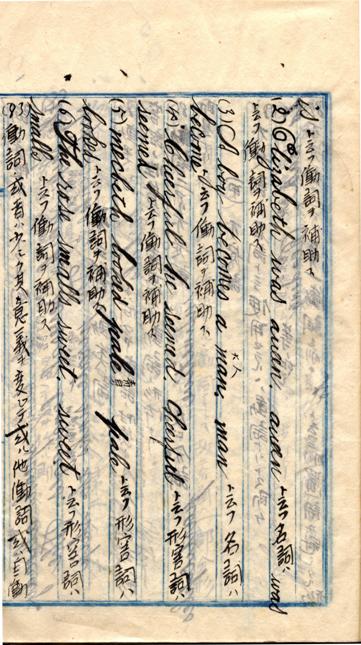 is ト云フ働詞ヲ補助ス
(2) Elizabeth was queen. queen ト云フ名詞ハ was
ト云フ働詞ヲ補助ス
(3) A boy becomes a man. man ト云フ名詞ハ
become ト云フ働詞ヲ補助ス
(4) Cheerful he seemed. Cheerful ト云フ形容詞ハ
seemed ト云フ働詞ヲ補助ス
(5) looked pale pale ト云フ形容詞ハ
looked ト云フ働詞ヲ補助ス
(6) The rose smells sweet. sweet ト云フ形容詞ハ
smells ト云フ働詞ヲ補助ス
働詞或者ハ少シク其意義ヲ変シテ或ハ他働詞或ハ自働